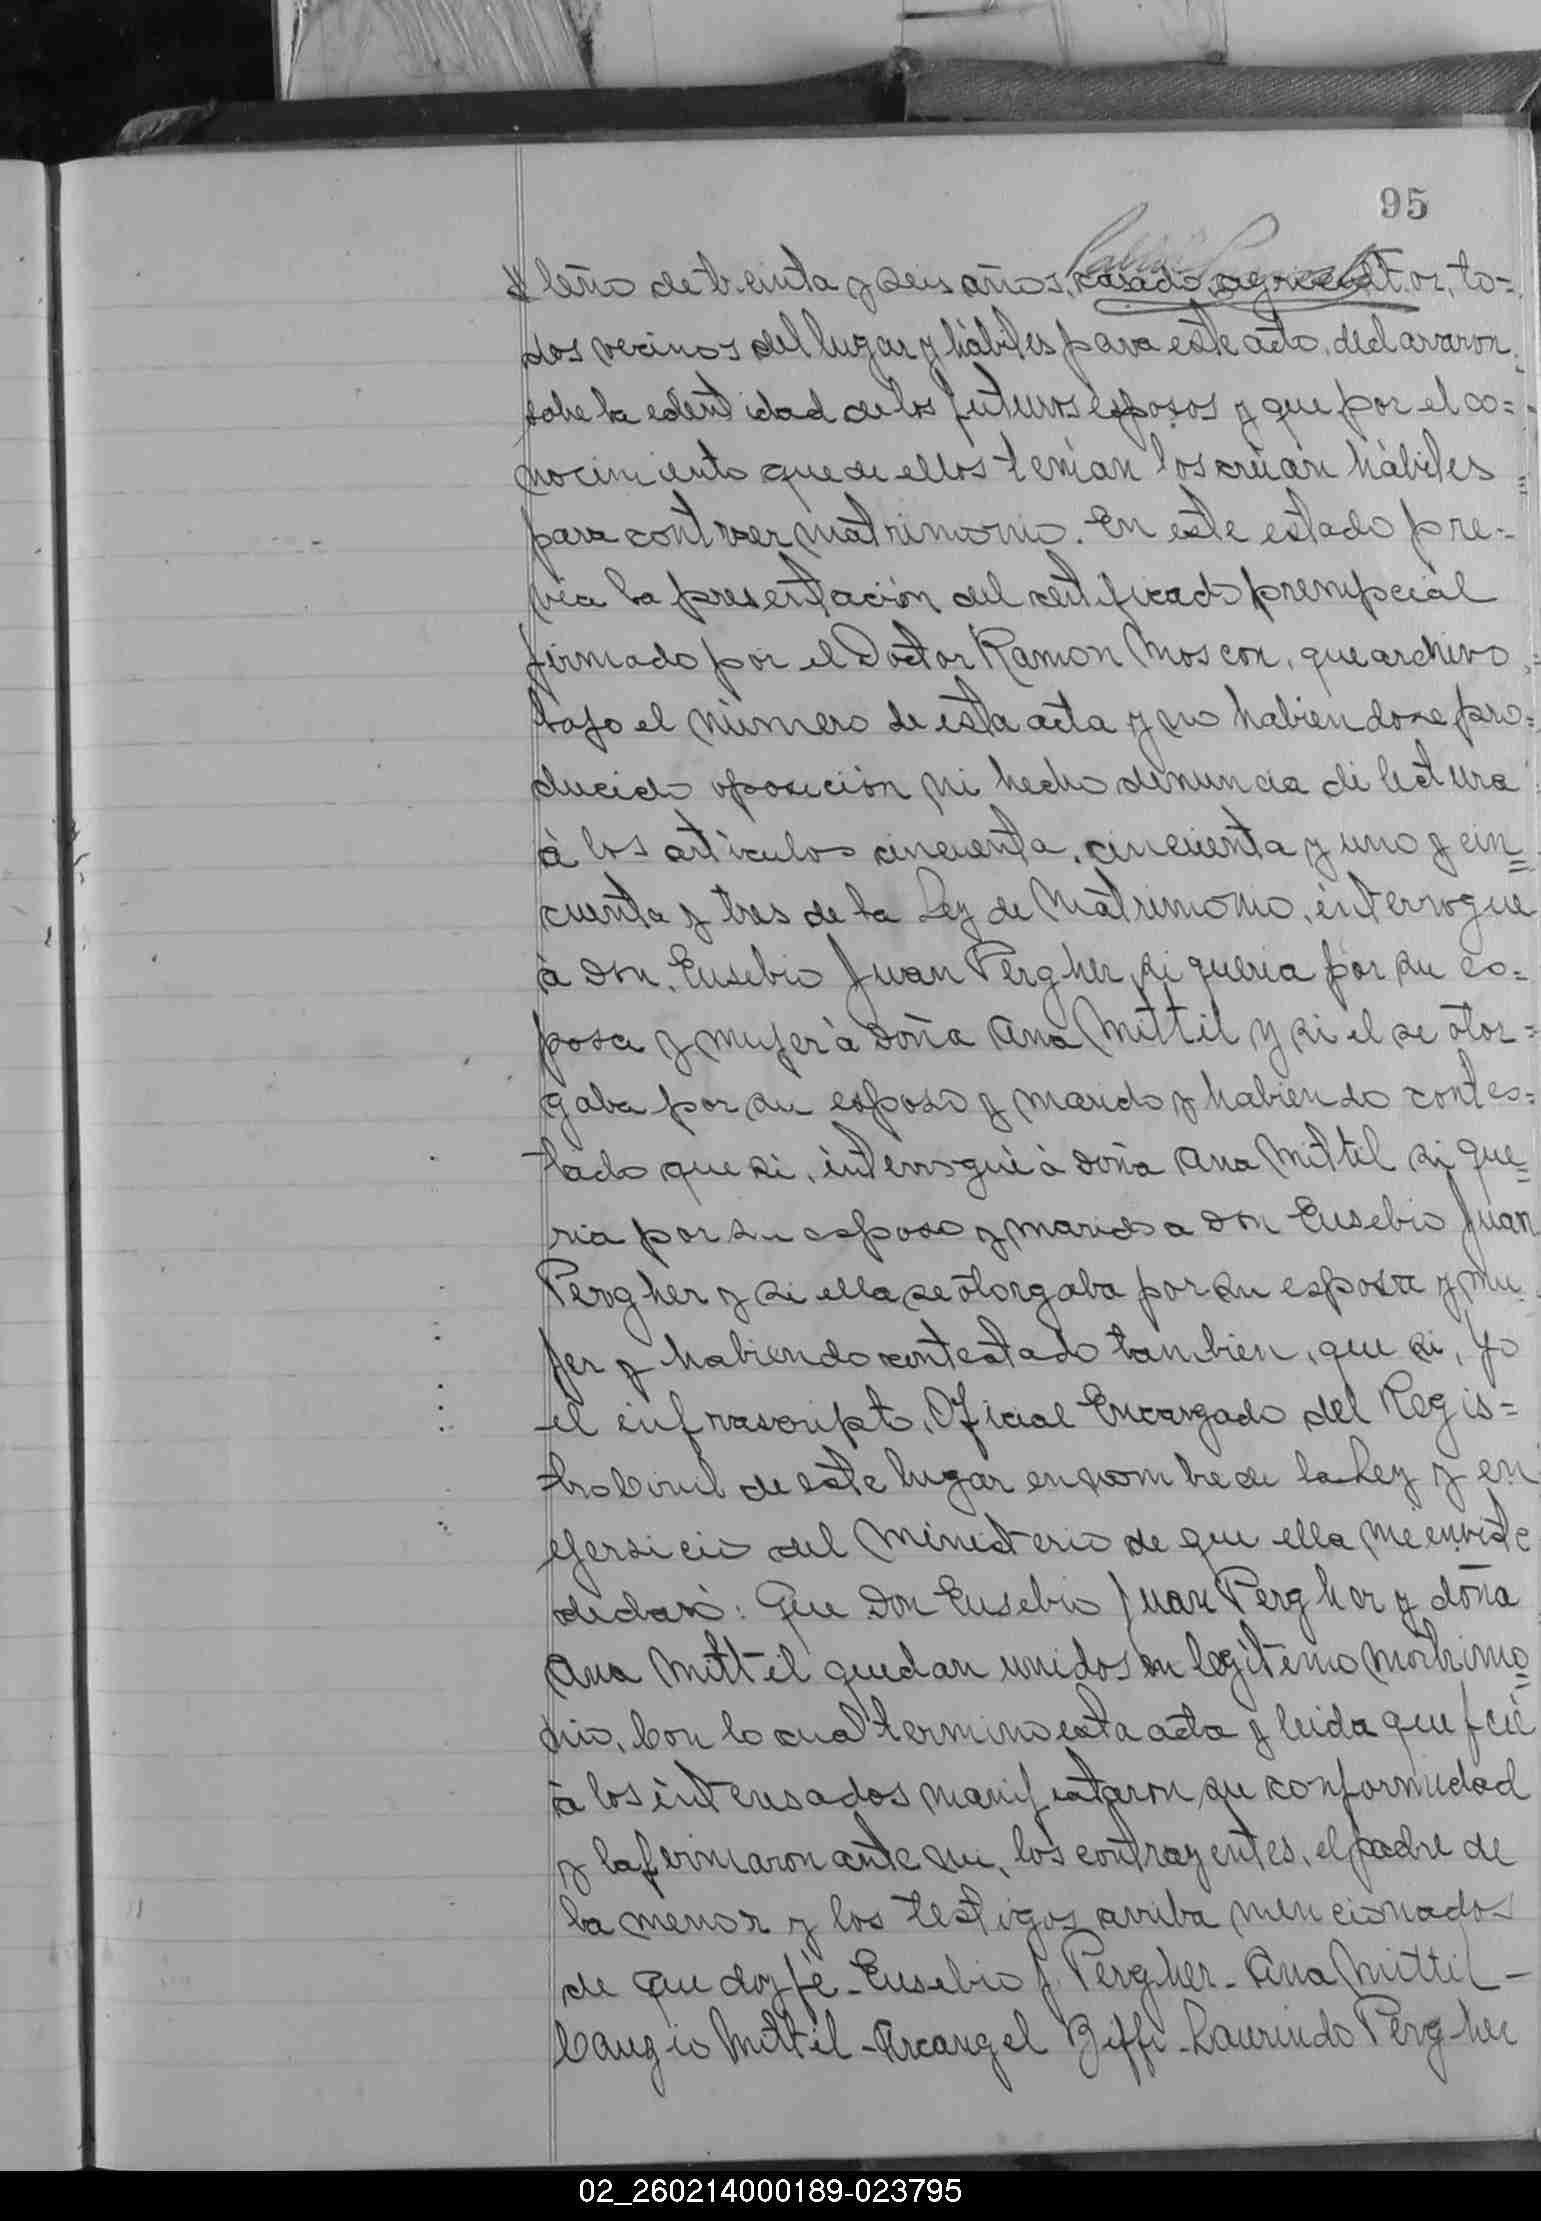 95
leño de treinta y seis años, casado, agricultor, to=
dos vecinos del lugar y hábiles para este acto, declararon
sobe la edentidad de los futuros esposos y que por el co=
nocimiento que de ellos tenían los creían hábiles
para contraer matrimonio. En este estado pre=
via la presentación del certificado prenupcial
firmado por el Doctor Ramon Moscon, que archivo
bajo el número de esta acta y no habiendose pro=
ducido oposición ni hecho denuncia di lectura
à los artículos cincuenta, cincuenta y uno y cin=
cuenta y tres de la Ley de Matrimonio, interrogue
à Don Eusebio Juan Pergher, si queria por su es=
posa y mujer à Doña Ana Mittil y si el se otor=
gaba por su esposo y marido y habiendo contes=
tado que si, interrogué à Doña Ana Mittil si que=
ria por su esposo y marido a Don Eusebio Juan
Pergher y si ella se otorgaba por su esposa y mu
jer y habiendo contestado tambien, que si, yo
el infrascripto, Oficial Encargado del Regis=
tro Civil de este lugar en nombre de la Ley y en
ejersicio del Ministerio de que ella me enviste
declaró: Que Don Eusebio Juan Pergher y doña
Ana Mittil quedan unidos en legítimo matrimo=
nio, Con lo cual termino esta acta y leida que fué
à los interesados manifestaron su conformidad
y la firmaron ante mi, los contrayentes, el padre de
la menor y los testigos arriba mencionados
de que doy fé - Eusebio J. Pergher - Ana Mittil -
Mittil - Arcangel Biffi - Laurindo Pergher
02_260214000189-023795